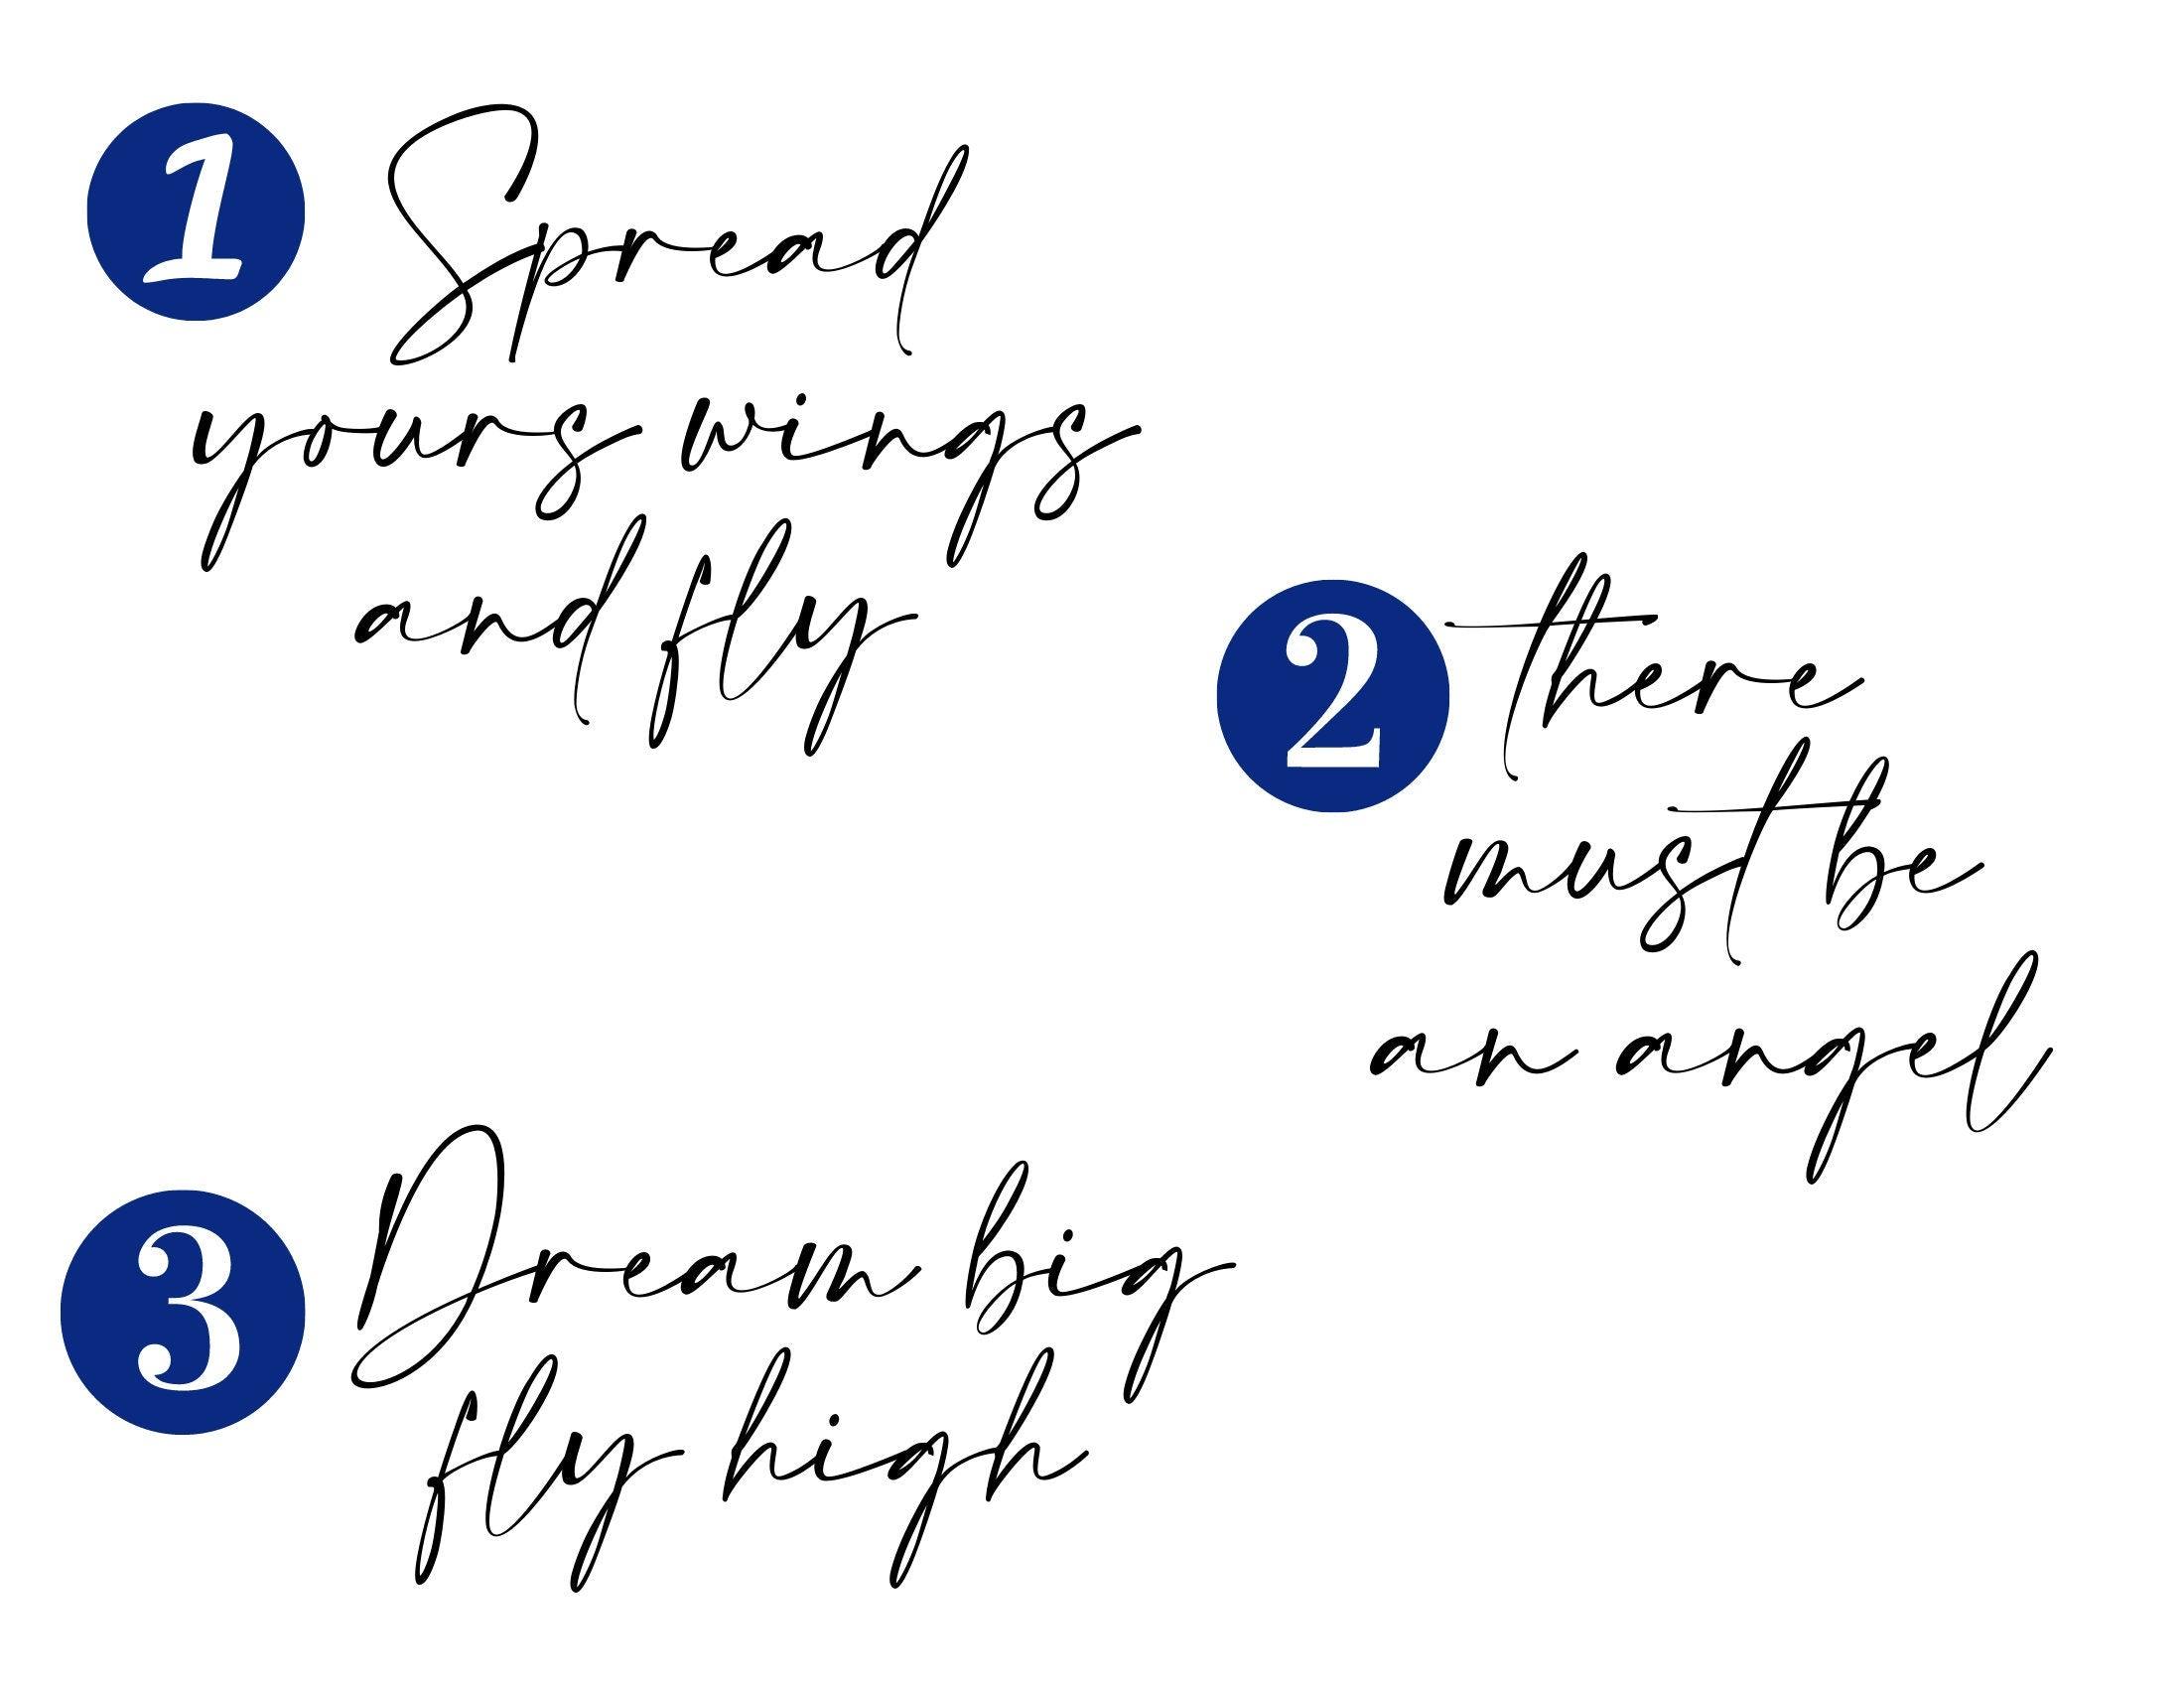 1 Spread
yours wings
and fly
2 there
must be
an angel
3 Dream big
fly high